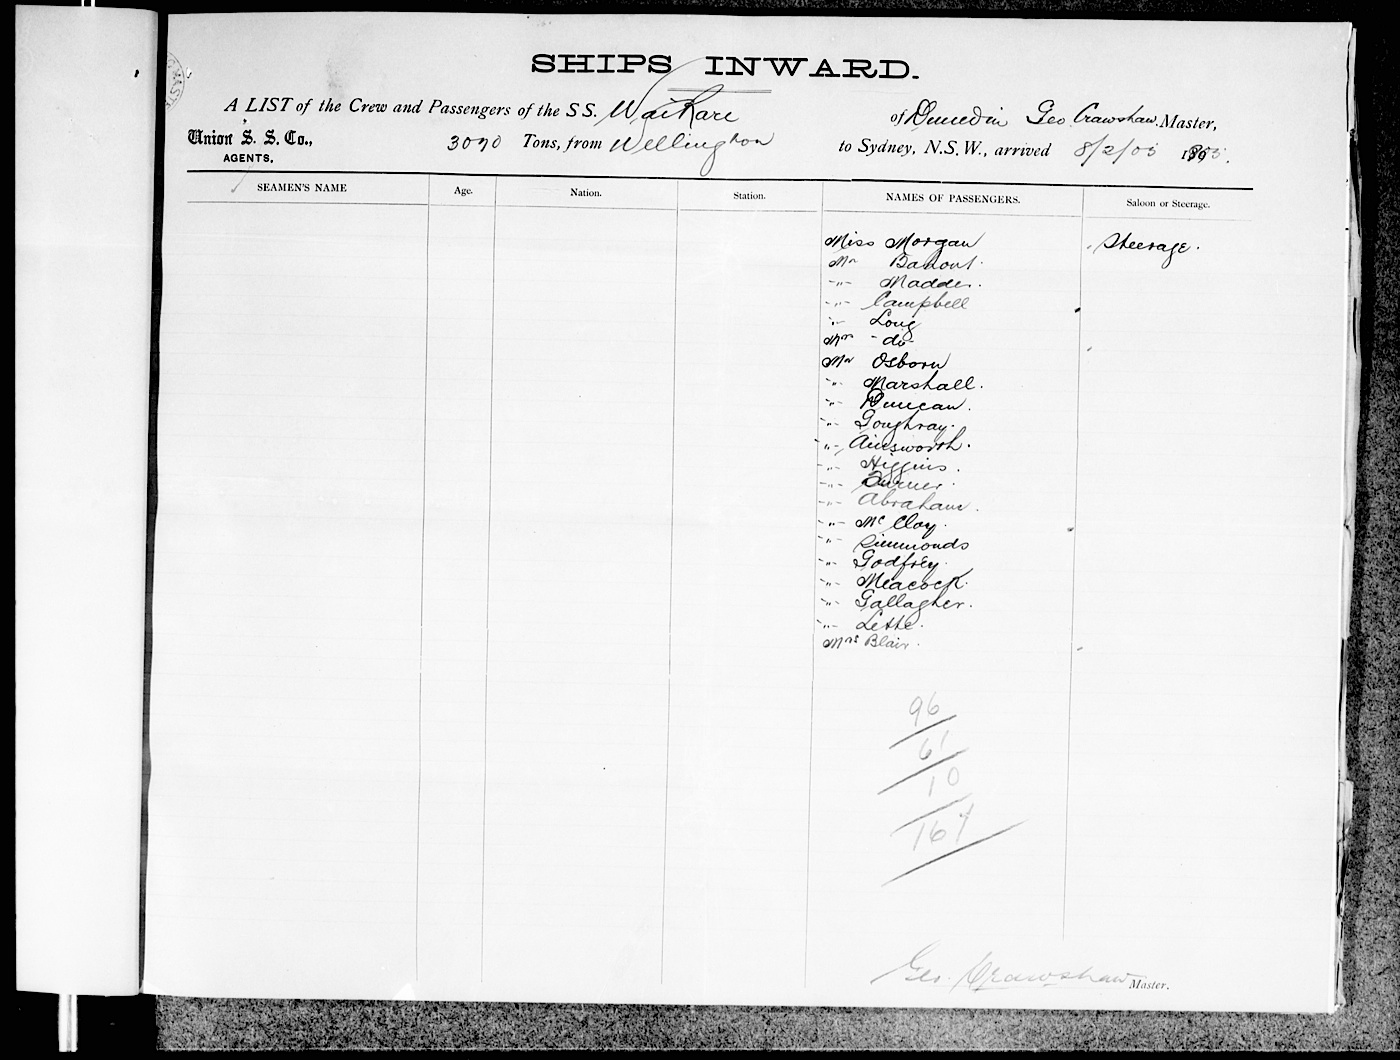 SHIPS INWARD.
A LIST of the Crew and Passengers of the S S. Waikare of Dunedin Geo Crawshaw. Master,
Union S. S. Co., 3070 Tons, from Wellington to Sydney, N.S.W., arrived 8/2/05 189
AGENTS,
SEAMEN'S NAME Age. Nation. Station. NAMES OF PASSENGERS. Saloon or Steerage.
Miss Morgan Steerage.
Mr
-"- Madder.
-"- Campbell
-"- Long
Mrs -do-
Mr Osborn
-"- Marshall.
-"- Duncan.
-"- Goughray.
-"- Ainsworth.
-"- Higgins.
-"-
-"- Abraham.
-"- McCloy.
-"- Simmonds
-"- Godfrey.
-"- Meacock.
-"- Gallagher.
-"-
Mrs Blair.
96
61
10
167
Geo. Crawshaw Master.